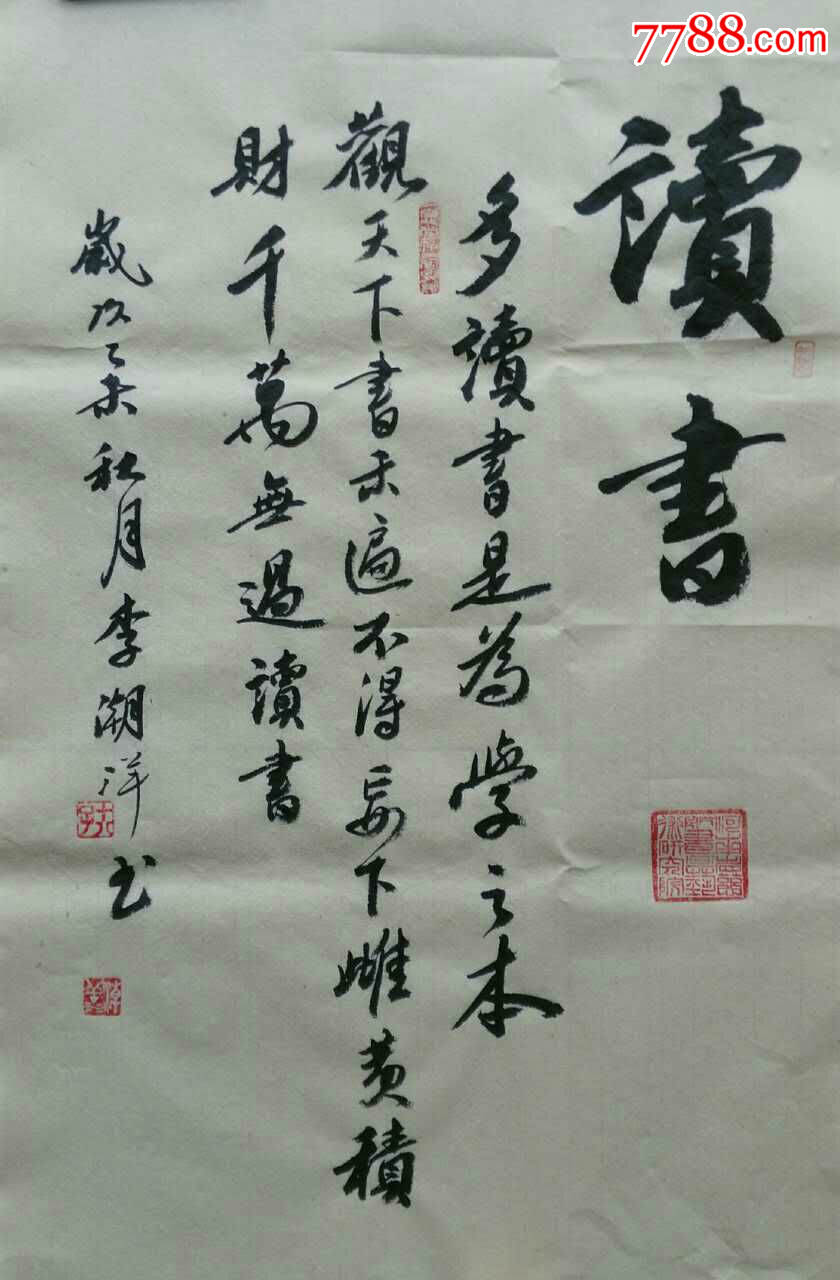 7788.com
讀書
多讀書是為學之本
觀天下書未遍不得妄下雌黄積
財千萬無過讀書
歲次乙未秋月李洋书